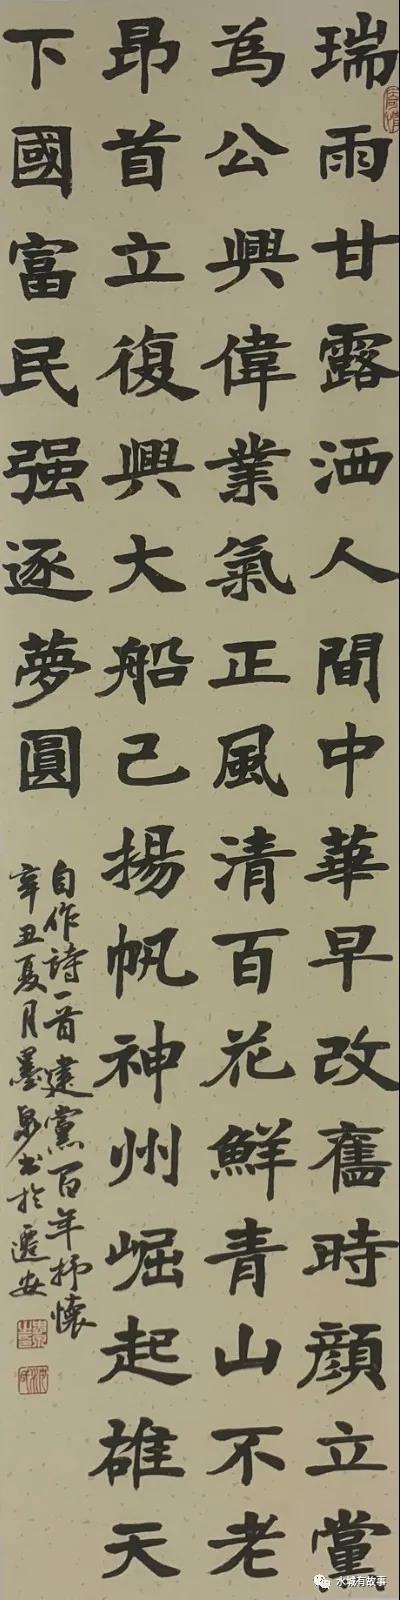 瑞雨甘露洒人間中華早改舊時顔立黨
為公興偉業氣正風清百花鮮青山不老
昂首立復興大船已揚帆神州崛起雄天
下國富民强逐夢圓
自作詩一首建黨百年抒懷
辛丑夏月墨泉书於遷安
水城有故事